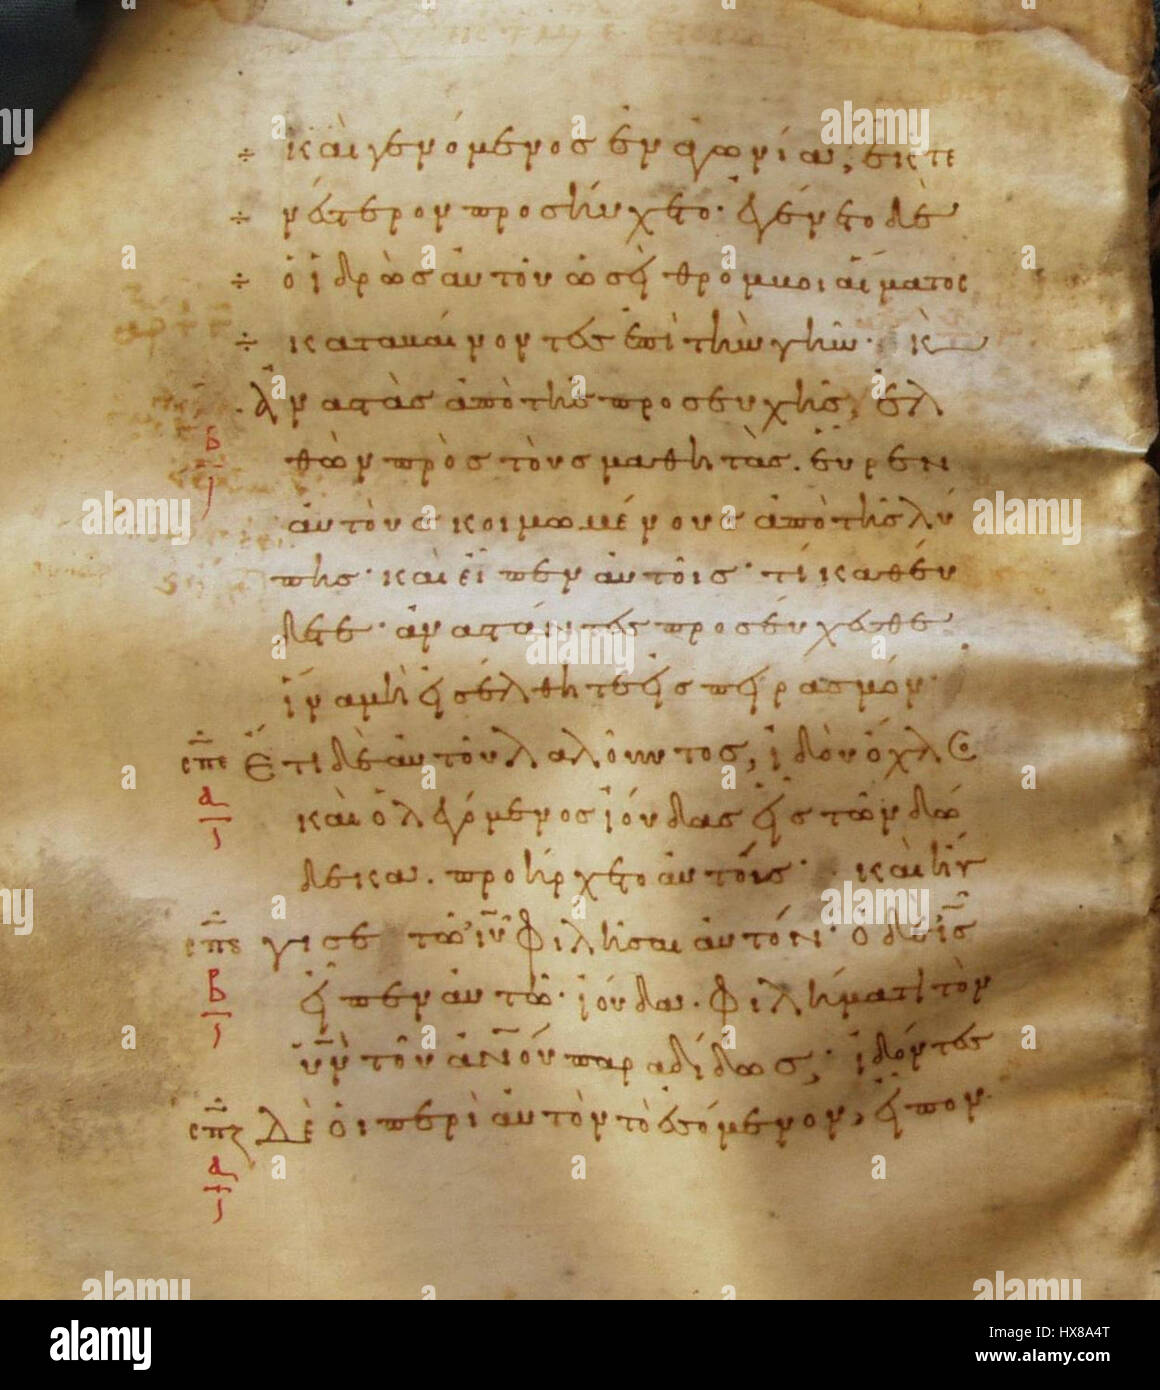 ÷ καὶ γενόμενος ἐν ἀγωνία, ἐκτε
÷ νέστερον προσηύχετο· ἐγένετο δὲ
÷ ὁ ἱδρὼς αὐτοῦ ὡσεὶ θρόμβοι αἵματος
÷ καταβαίνοντες ἐπὶ τὴν γῆν· κ
ἀναστὰς ἀπὸ τῆς προσευχῆς, ἐλ
θὼν πρὸς τοὺς μαθητὰς. εὗρεν
αὐτοὺς κοιμωμένους ἀπὸ τῆς λύ
πης· καὶ εἶπεν αὐτοῖς· τί καθεύ
δετε· ἀναστάντες προσεύχεσθε
ἵνα μὴ εἰσέλθητε εἰς πειρασμόν·
σπε Ἔτι δὲ αὐτοῦ λαλοῦντος, ἰδοὺ ὄχλο
καὶ ὁ λεγόμενος ἰούδας εἷς τῶν δώ
δεκα. προήρχετο αὐτοῖς· καὶ ἤγ
γισε τῶ ιυ φιλῆσαι αὐτόν· ὁ δὲ ις
εἶπεν αὐτῶ· ἰούδα. φιλήματι τὸν
υν τοῦ ανου παραδίδως; ἰδόντες
σπζ Δὲ οἱ περὶ αὐτὸν τὸ ἐσόμενον, εἶπον
β
α
β
α
alamy
HX8A4T
www.alamy.com